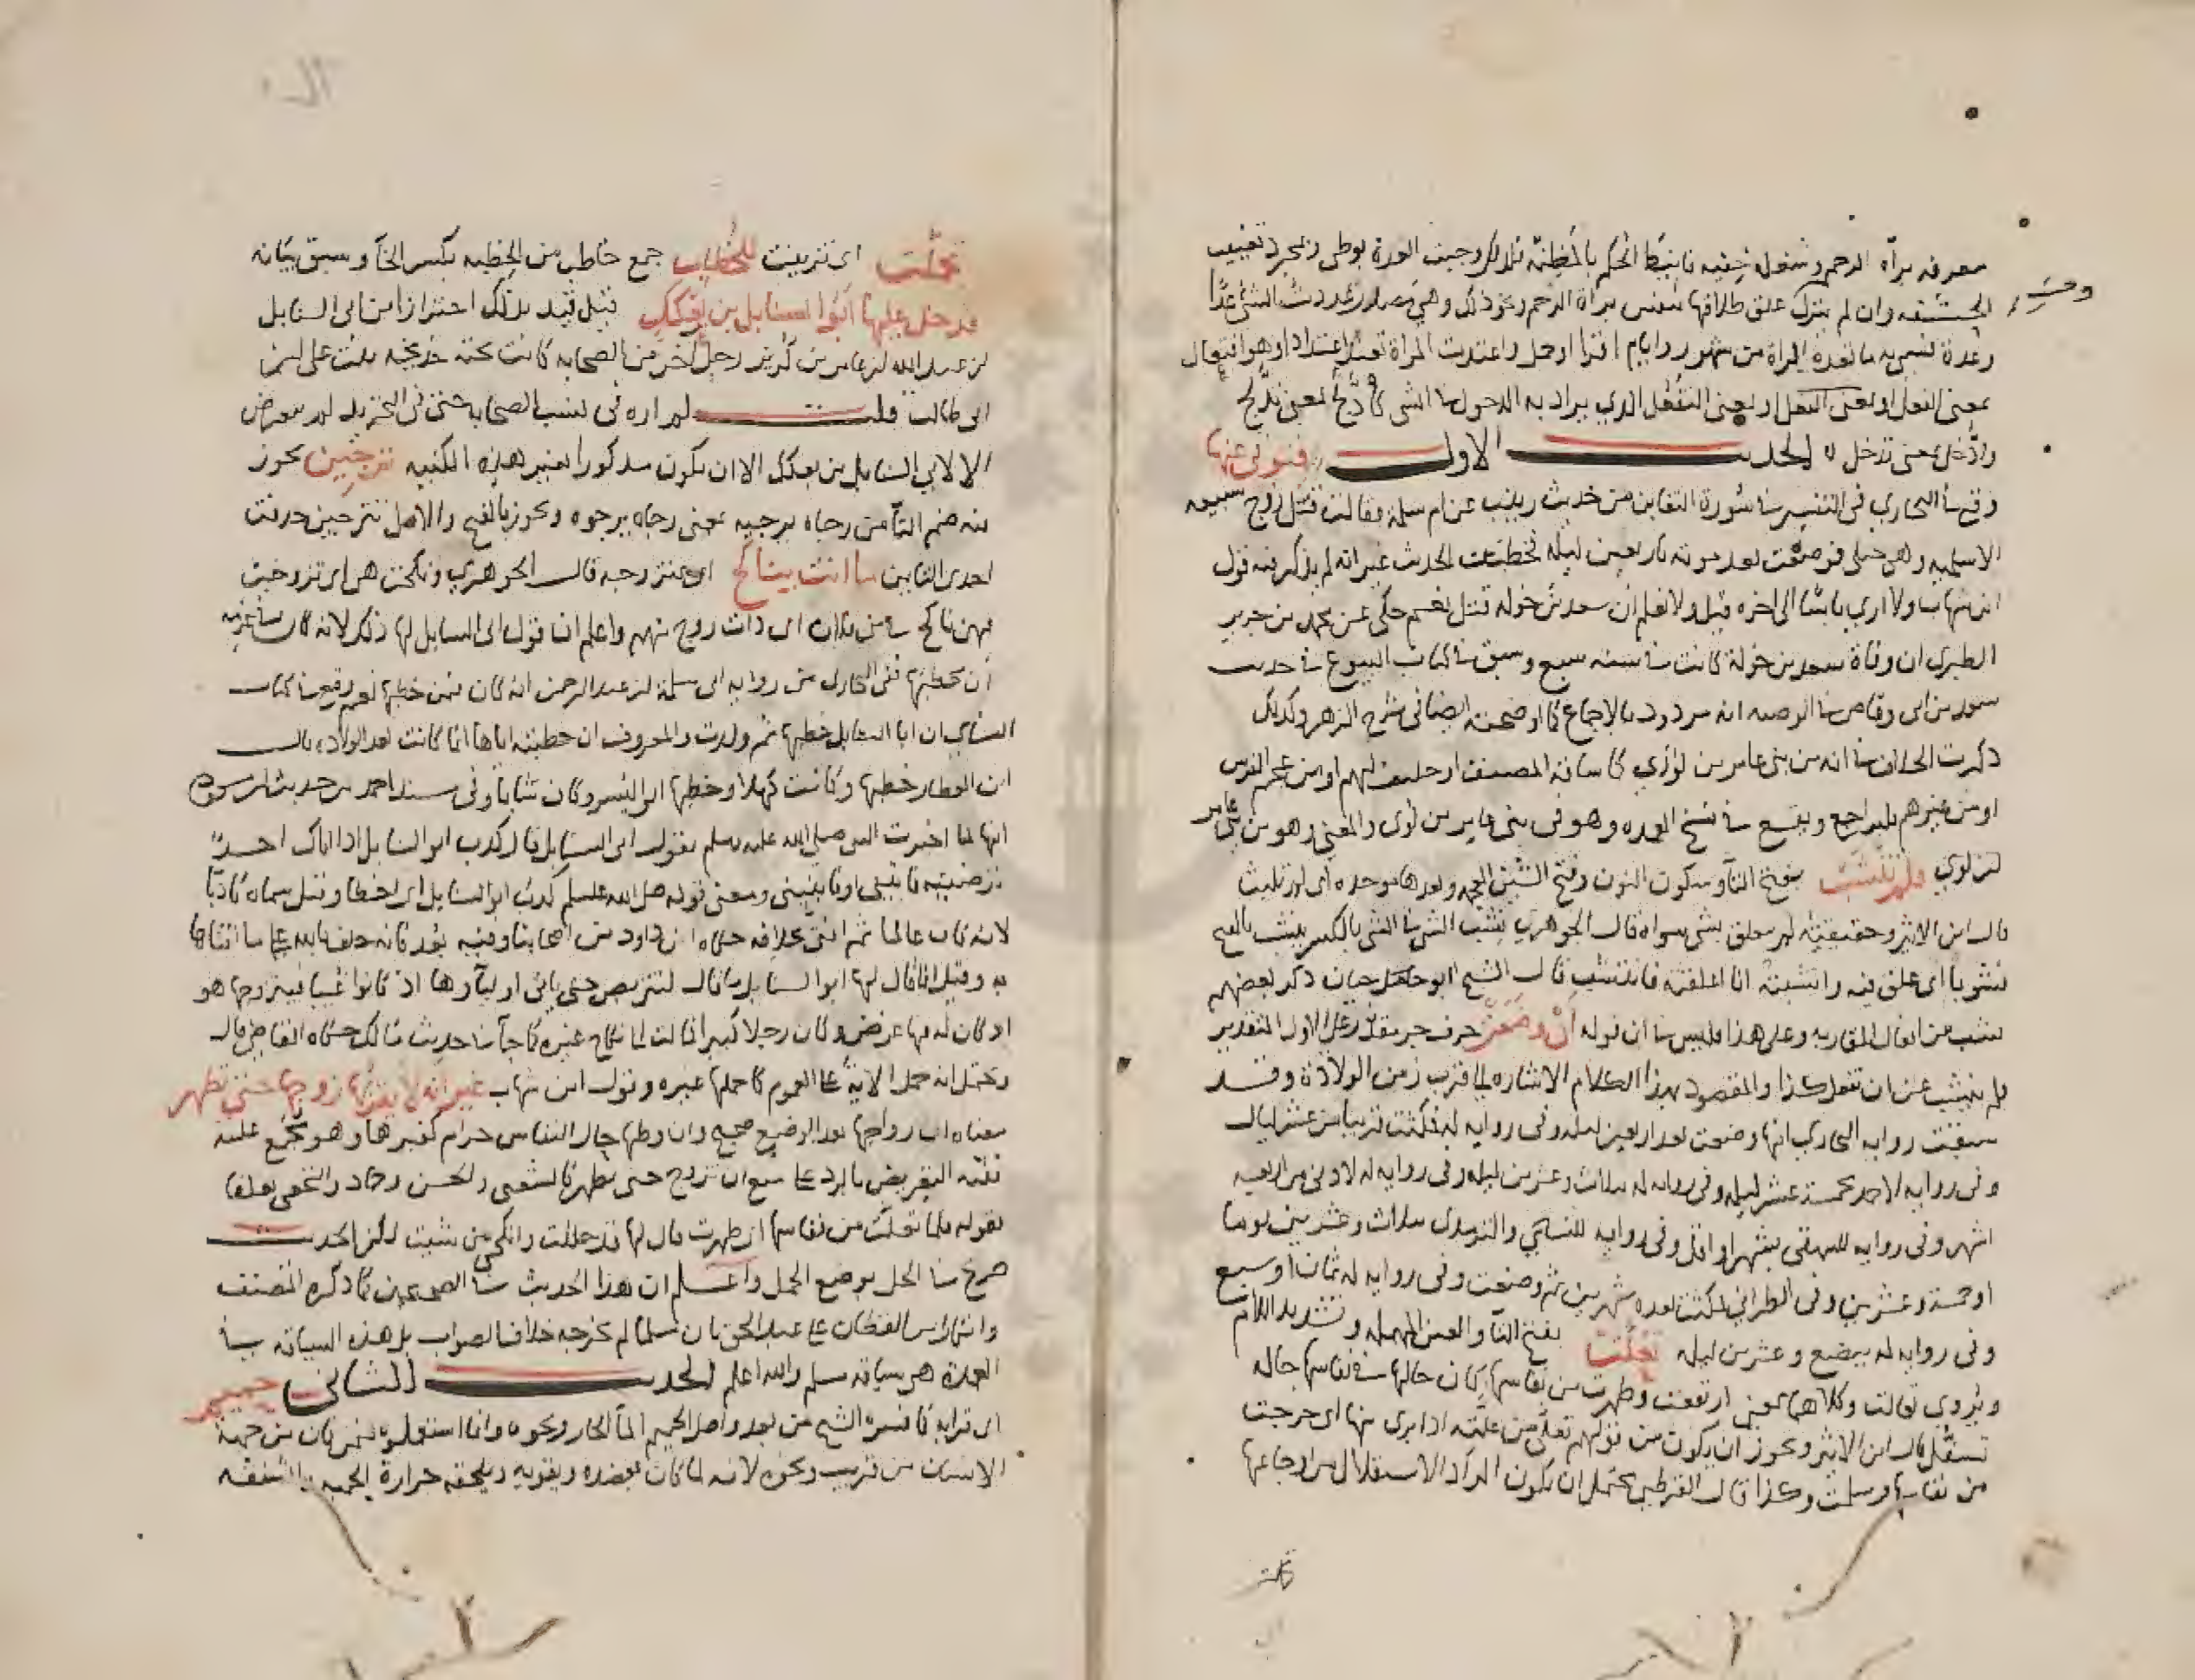 معرفه براة الرحم وشغله خفيه فانيط الحكم بالمظنة فلذلك وجبت العدة بوطي وبمجرد تغييب
الحشفه وان لم ينزل علق طلاقها بنفس براة الرحم ونحو ذلك وهي مصدر عددت الشي عدا
وعدة لتسميه ما تعده المراة من شهور وايام اقرا او حمل واعتدت المراة تعتد اعتدادا وهو افتعال
بمعنى التفعل الذي يراد به الدخول في الشي كادلج بمعنى تدلج
وادخل بمعنى تدخل الحديث الاول فتوفي عنها
وقع في البخاري في التفسير في سورة التغابن من حديث زينب عن ام سلمة فقالت قتل زوج سبيعه
الاسلميه وهي حبلى فوضعت بعد موته باربعين ليله فخطبت الحديث غير انه لم يذكر فيه قول
ابن شهاب ولا ارى باسا الى اخره قيل ولا نعلم ان سعد بن خوله قتل نعم حكى عن محمد بن جرير
الطبري ان وفاة سعد بن خولة كانت في سنه سبع وسبق في كتاب البيوع في حديث
سعد بن ابي وقاص في الوصيه انه مردود بالاجماع كما اوضحته ايضا في شرح الزهر وكذلك
ذكرت الخلاف في انه من بني عامر بن لؤي كما ساقه المصنف او حليف لهم او من عجم الفرس
او من غيرهم فليراجع ويقع في نسخ العمده وهو في بني عامر بن لؤي والمعنى وهو من بني عامر
بن لوي فلم تنشب بفتح التا وسكون النون وفتح الشين المعجمه وبعدها موحده اي لم تلبث
قال ابن الاثير وحقيقته لم يتعلق بشي سواه قال الجوهري نشب الشي في الشي بالكسر ينشب بالفتح
نشوبا اي علق فيه وانشبته انا اعلقته فانتشب قال الشيخ ابو حيان ذكر بعضهم
نشب من افعال المقاربه وعلى هذا فليس في ان قوله ان وضعت حرف جر مقدر وعلى الاول التقدير
فلم ينشب عن ان تفعل كذا والمقصود بهذا الكلام الاشاره الى قرب زمن الولادة وقد
سبقت روايه البخاري انها وضعت بعد اربعين ليله وفي روايه له فمكثت قريبا من عشر ليال
وفي روايه لاحمد بخمسة عشر ليله وفي روايه له بثلاث وعشرين ليله وفي روايه له لادنى من اربعه
اشهر وفي روايه للبيهقي بشهر او اقل وفي روايه للنسائي والترمذي بثلاث وعشرين يوما
او خمسة وعشرين وفي الطبراني فمكثت بعده شهرين ثم وضعت وفي روايه له ثمان او سبع
وفي روايه له ببضع وعشرين ليله تعلت بفتح التا والعين المهمله وتشديد اللام
ويروى تعالت وكلاهما بمعنى ارتفعت وطهرت من نفاسها كان حالها في نفاسها حاله
تسفل قال ابن الاثير ويجوز ان يكون من قولهم تعلى من علته اذا برى منها اي خرجت
من نفاسها وسلمت وكذا قال القرطبي يحتمل ان يكون المراد الاستقلال من اوجاعها
تجملت اي تزينت للخطاب جمع خاطب من الخطبه بكسر الخا وسبق بيانه
فدخل عليها ابو السنابل بن بعكك قيل قيد بذلك احترازا من ابي السنابل
بن عبد الله بن عامر بن كريز رجل اخر من الصحابه كانت تحته خديجه بنت علي بن
ابي طالب قلت لم اره في كتب الصحابه حتى في التجريد لم يتعرض
الا لابي السنابل بن بعكك الا ان يكون مذكورا بغير هذه الكنيه ترجين يجوز
فيه ضم التا من رجاه يرجيه بمعنى رجاه يرجوه ويجوز بالفتح والاصل تترجين حدفت
احدى التاين ما انت بناكح اي بمتزوجه قال الجوهري ونكحت هي اي تزوجت
فهي ناكح في بني فلان اي ذات زوج منهم واعلم ان قول ابي السنابل لها ذلك لانه كان من غرضه
ان يخطبها ففي البخاري من روايه ابي سلمة بن عبد الرحمن انه كان فيمن خطبها نعم وقع في كتاب
النسائي ان ابا السنابل خطبها ثم ولدت والمعروف ان خطبته اياها انما كانت بعد الولاده قال
ابن العطار خطبها وكانت كهلا وخطبها ابو اليسر وكان شابا وفي مسند احمد من حديث ابن مسعود
انها لما اخبرت النبي صلى الله عليه وسلم بقول ابي السنابل قال كذب ابو السنابل اذا اتاك احد
ترضيه فايتيني او فانبئيني ومعنى قوله صلى الله عليه وسلم كذب ابو السنابل اي اخطا وقيل سماه كاذبا
لانه كان عالما ثم افتى بخلافه حكاه ابن داود من اصحابنا وفيه بعد فانه حلف بالله على ما افتاها
به وقيل انما قال لها ابو السنابل ما قال لتتربص حتى ياتي اوليآوها اذ كانوا غيبا فيتزوجها هو
اذ كان له فيها غرض وكان رجلا كبيرا فمالت الى نكاح غيره كما جا في حديث مالك حكاه القاضي قال
ويحتمل انه حمل الاية على العموم كما حملها غيره وقول ابن شهاب غير انه لا يقربها زوجها حتى تطهر
معناه ان زواجها بعد الوضع صحيح وان وطيها حال النفاس حرام كغيرها وهو مجمع عليه
ففيه التعريض بالرد على منع ان تزوج حتى تطهر كالشعبي والحسن وحماد والنخعي تعلقا
بقوله فلما تعلت من نفاسها اي طهرت قال لها قد حللت فانكحي من شيت لكن الحديث
صرح في الحل بوضع الحمل واعلم ان هذا الحديث في الصحيحين كما ذكره المصنف
وانكار ابن القطان على عبد الحق بان مسلما لم يخرجه خلاف الصواب بل هذه السياقه في
العمدة هي سياقه مسلم والله اعلم الحديث الثاني حميم
اي قرابه كما فسره الشيخ من بعد واصل الحميم الما الحار ونحوه وانما استعملوه فيمن كان من جهة
الانسان من قريب ونحوه لانه لما كان يعضده ويقويه ويلحقه حرارة الحميه والشفقه